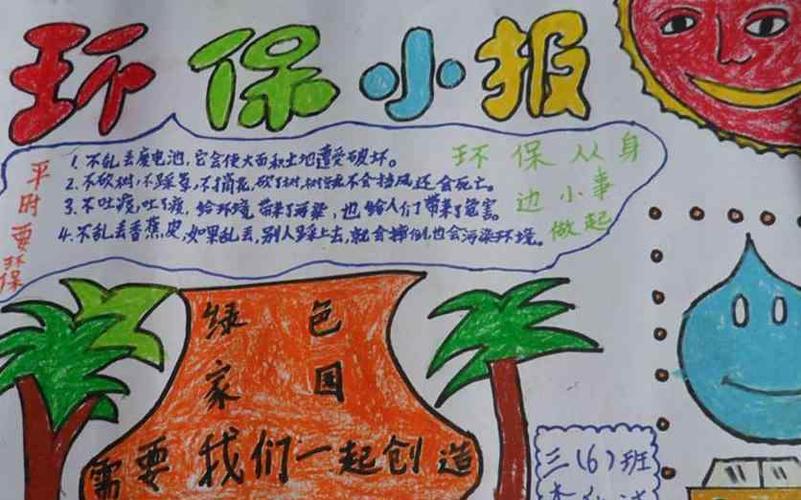 环保小报
平时要环保
1. 不乱丢废电池，它会使大面积土地遭受破坏。
2. 不砍树，不踩草，不摘花，砍了树，树就不会挡风还会死亡。
3. 不吐痰，吐了痰，给环境带来了污染，也给人们带来了危害。
4. 不乱丢香蕉皮，如果乱丢，别人踩上去，就会摔倒，也会污染环境。
环保从身
边小事
做起
绿色
家园
需要我们一起创造
三(6)班